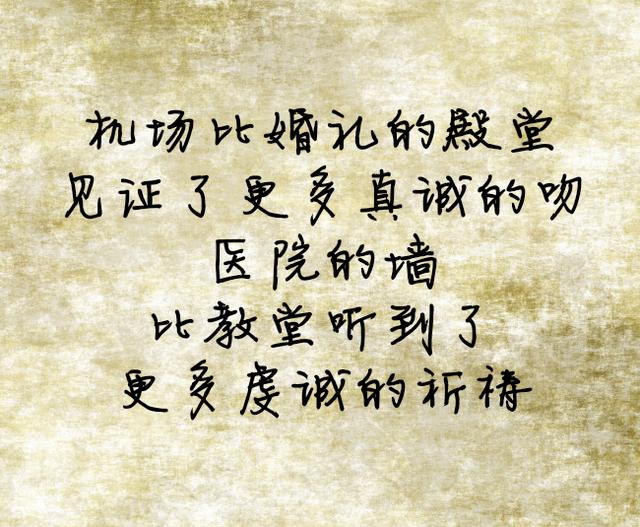 机场比婚礼的殿堂
见证了更多真诚的吻
医院的墙
比教堂听到了
更多虔诚的祈祷